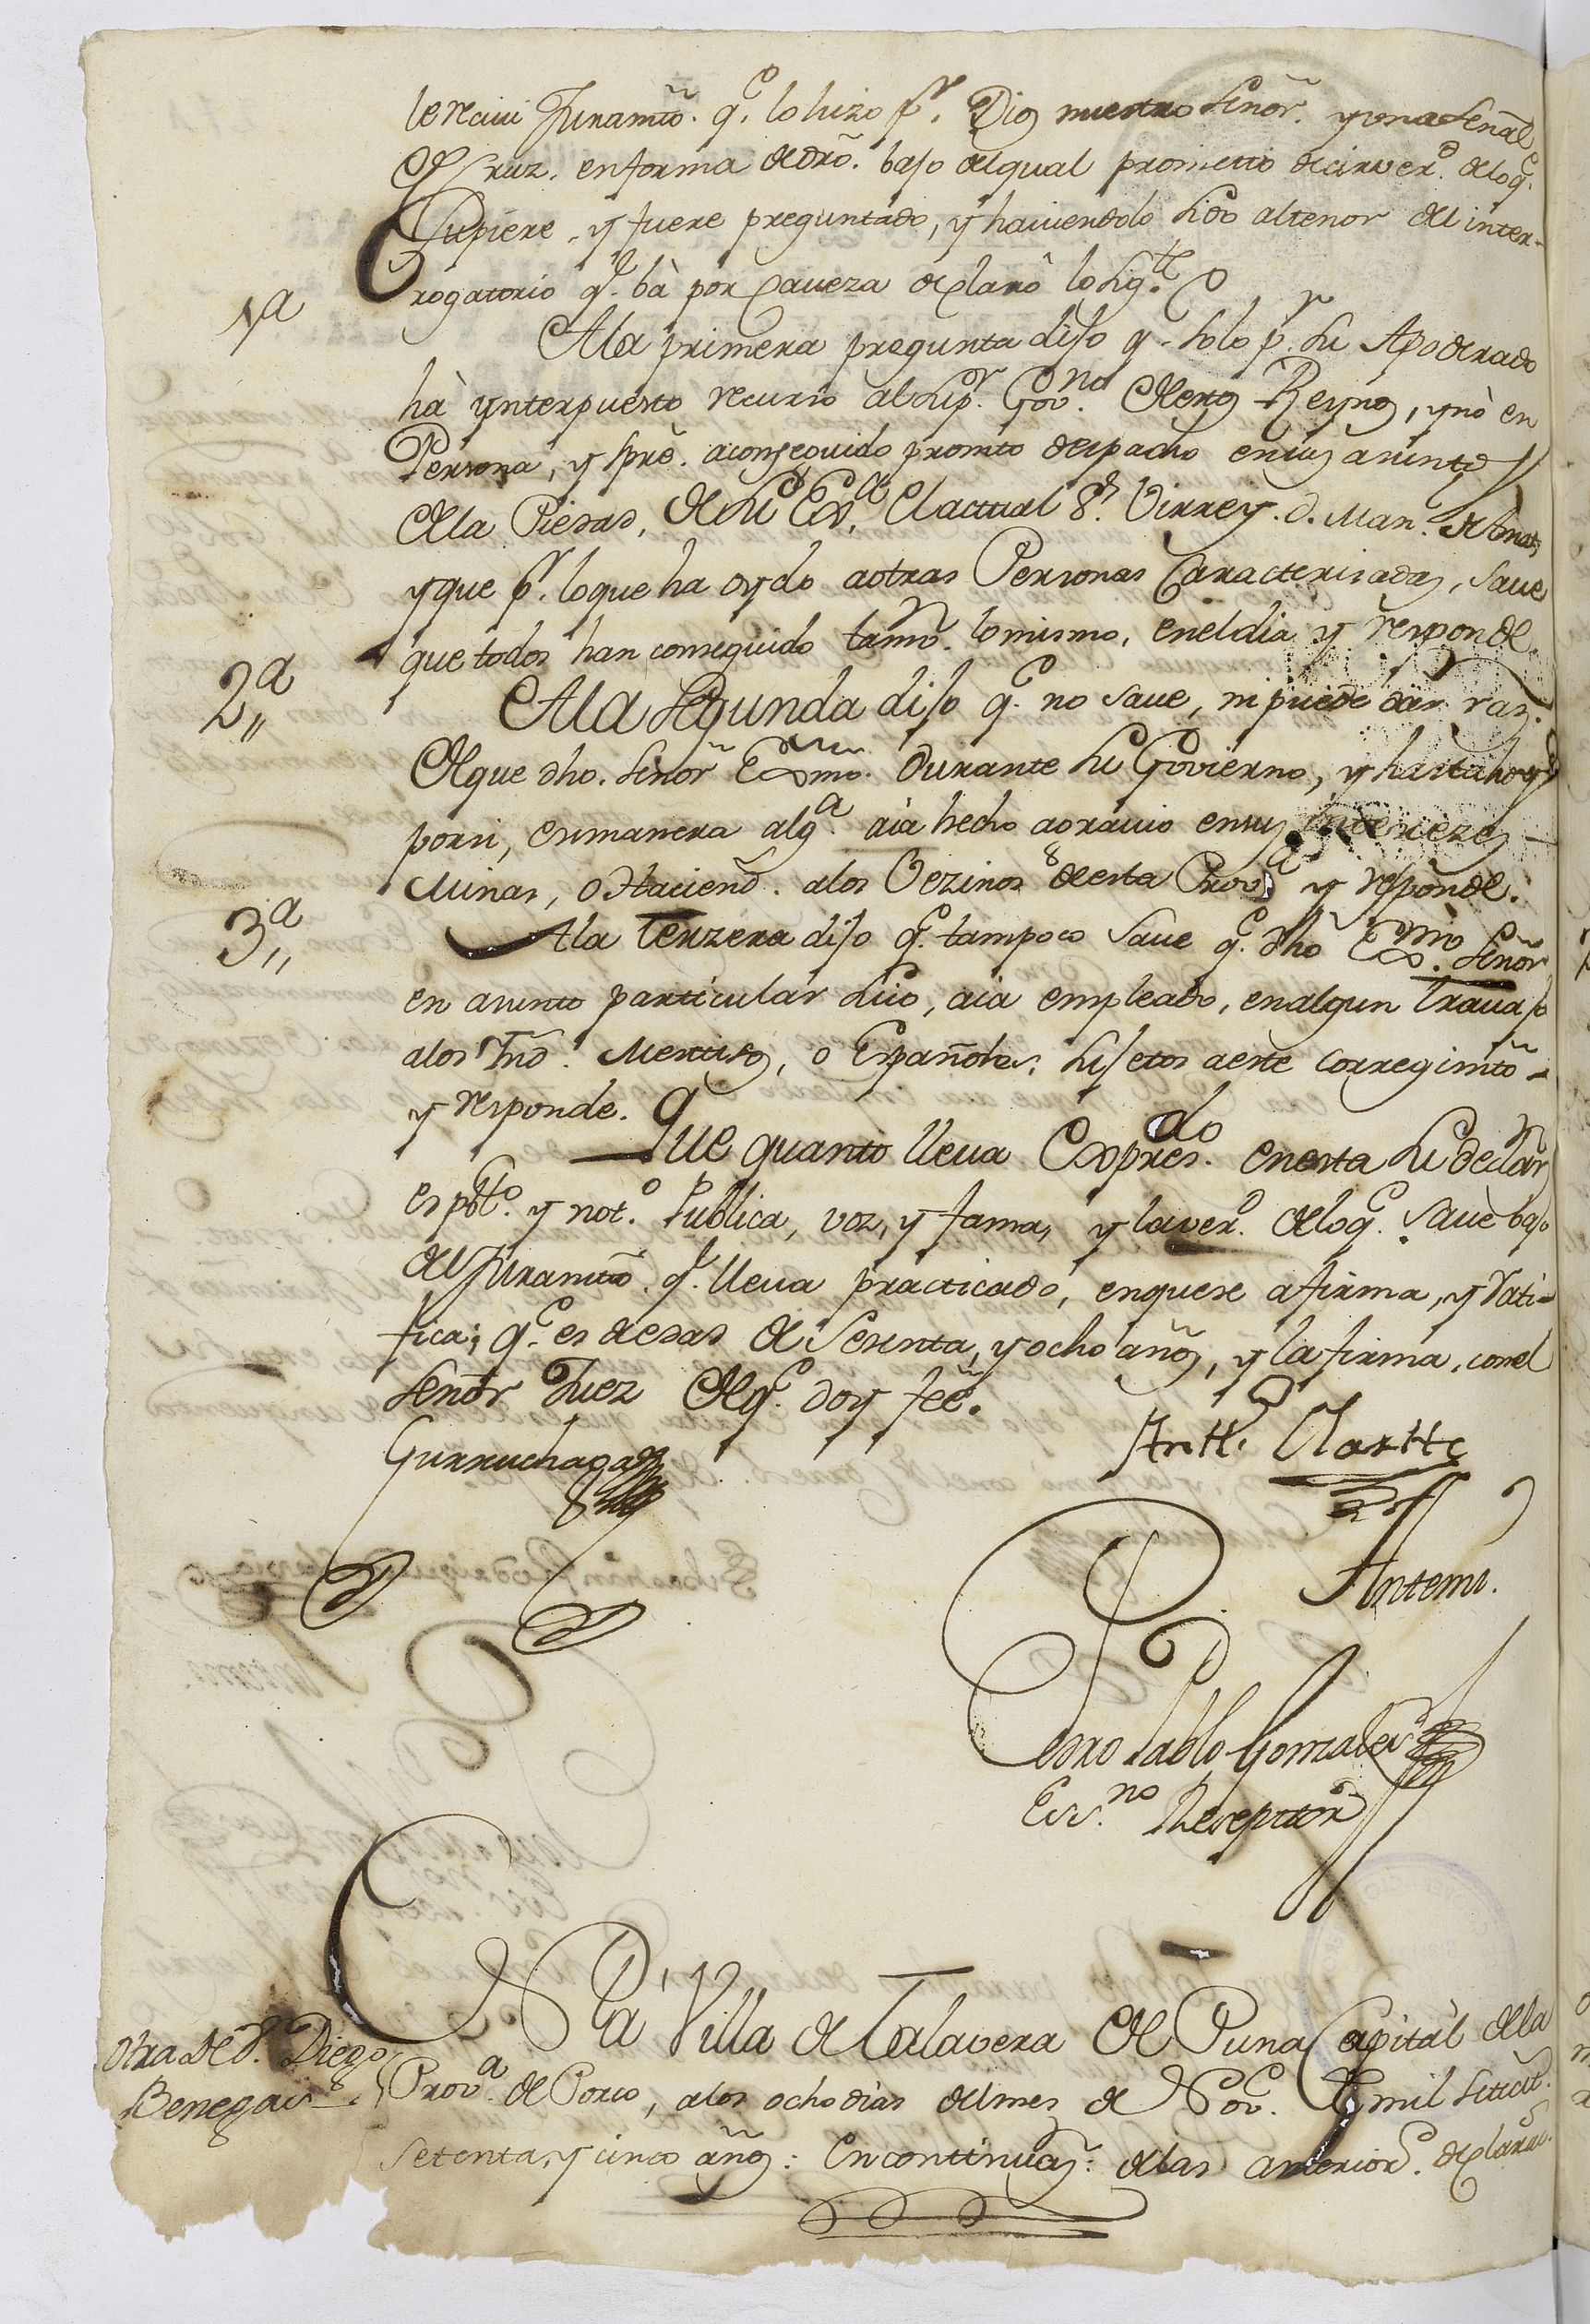 le reciui Juramto. q.e lo hizo pr. Dios nuestro Señor. y una Señal
de Cruz. en forma de dro. bajo del qual prometio decir ver.d de lo q.e
Supiere, y fuere preguntado, y haviendolo sido al tenor del inter-
rogatorio q.e bà por Caveza declarò lo sig.te
1a
Ala primera pregunta dijo q.e solo p.r su Apoderado
hà ynterpuesto recurso al Sup.r Gov.no de estos Reynos, y nò en
Persona, y spre. a conseguido promto despacho en sus asuntos
de la Piedad, de su Ex.a el actual S.r Virrey. D. Man.l de Amat,
y que p.r lo que ha oydo a otras Personas Caracterisadas, save
que todos han conseguido tamn. lo mismo, en el dia y responde.
2a,,
Ala Segunda dijo q.e no save, ni puede dar raz.n
de que dho. Señor Exmo. durante su Govierno, y hasta hoy
por si, en manera alg.a aia hecho agravio en sus Yntereses
Minas, o Haciend.s a los Vezinos de esta Prov.a y responde.
3a,,
Ala Terzera dijo q.e tampoco save q.e dho Exmo. Señor
en asunto particular suio, aia empleado, en algun travajo
a los Ynd.s Mestisos, o Españoles, sujetos a este Corregimto
y responde. Que quanto lleva Expres.do en esta su declar.n
es pbco. y not.o publica, voz, y fama, y la ver.d de lo q.e save bajo
del Juramto. q.e lleva practicado, en que se afirma, y rati-
fica; q.e es de edad de Sesenta, y ocho años, y la firma, con el
Señor Juez de q.e doy feè.
Gurruchaga
Antt.o Uartte
Antemi.
Pedro Pablo Gonzales
Ess.no Reseptor
Otra de D. Diego
Benegas
En la Villa de Talavera de Puna Capitàl de la
Prov.a de Porco, a los ocho dias del mes de Nov.e de mil setect.s
setenta, y cinco años: En continuaz.n de las anterior.s declarac.s